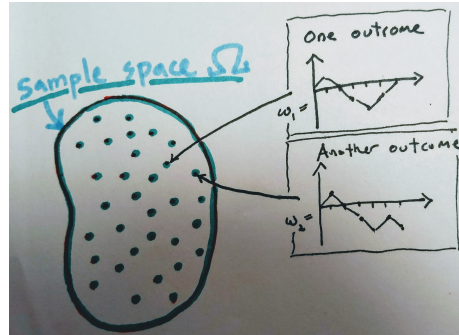 sample space Ω
One outcome
ω₁ =
Another outcome
ω₂ =